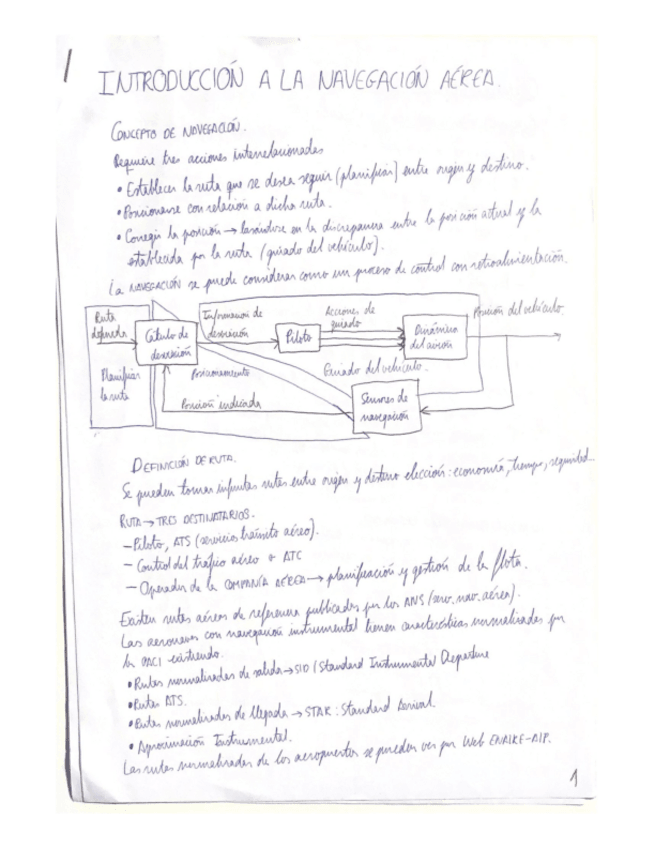 INTRODUCCIÓN A LA NAVEGACIÓN AÉREA.
CONCEPTO DE NAVEGACIÓN.
Requiere tres acciones interrelacionadas
• Establecer la ruta que se desea seguir (planificar) entre origen y destino.
• Posicionarse con relación a dicha ruta.
• Corregir la posición → basándose en la discrepancia entre la posición actual y la
establecida por la ruta (guiado del vehículo).
La NAVEGACIÓN se puede considerar como un proceso de control con retroalimentación.
Ruta
definida
Cálculo de
desviación
Información de
desviación
Piloto
Acciones de
guiado
Dinámica
del avión
Posición del vehículo.
Planificar
la ruta
Posicionamiento
Guiado del vehículo.
Posición indicada
Sensores de
navegación
DEFINICIÓN DE RUTA.
Se pueden tomar infinitas rutas entre origen y destino elección: economía, tiempo, seguridad...
RUTA → TRES DESTINATARIOS.
- Piloto, ATS (servicios tránsito aéreo).
- Control del tráfico aéreo ATC
- Operador de la COMPAÑÍA AÉREA → planificación y gestión de la flota.
Existen rutas aéreas de referencia publicadas por los ANS (serv. nav. aérea).
Las aeronaves con navegación instrumental tienen características normalizadas por
la OACI existiendo.
• Rutas normalizadas de salida → SID (Standard Instrumental Departure
• Rutas ATS.
• Rutas normalizadas de llegada → STAR: Standard Arrival.
• Aproximación Instrumental.
Las rutas normalizadas de los aeropuertos se pueden ver por Web ENAIRE-AIP.
1